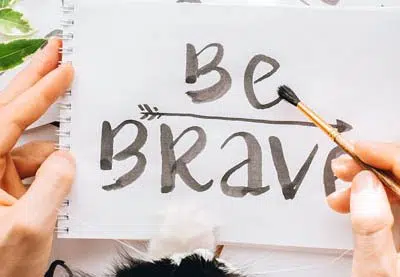 Be
Brave